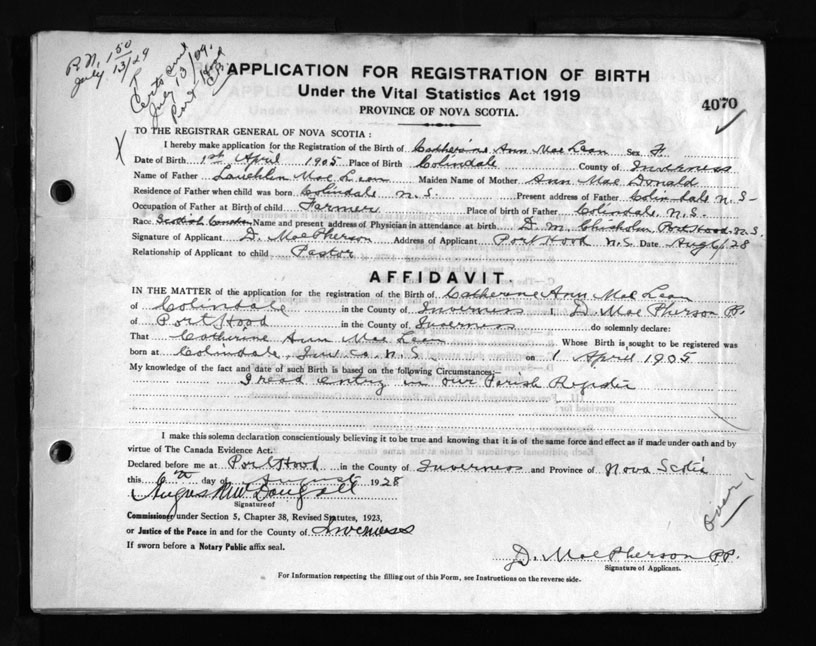 P.N. 150
July 13/29
Certs and
July 13/09.
Port Hood
C.B.
APPLICATION FOR REGISTRATION OF BIRTH
Under the Vital Statistics Act 1919
PROVINCE OF NOVA SCOTIA.
4070
TO THE REGISTRAR GENERAL OF NOVA SCOTIA:
X
I hereby make application for the Registration of the Birth of Catherine Ann MacLean Sex F.
Date of Birth 1st April 1905 Place of Birth Colindale County of Inverness
Name of Father Lauchlin MacLean Maiden Name of Mother Ann MacDonald
Residence of Father when child was born Colindale N.S. Present address of Father Colindale N.S-
Occupation of Father at Birth of child Farmer Place of birth of Father Colindale, N.S.
Race Scotish Name and present address of Physician in attendance at birth D. M. Chisholm Port Hood N.S.
Signature of Applicant D. MacPherson Address of Applicant Port Hood N.S. Date Aug 6/28
Relationship of Applicant to child Pastor
AFFIDAVIT.
IN THE MATTER of the application for the registration of the Birth of Catherine Ann MacLean
of Colindale in the County of Inverness I, D. MacPherson P.P.
of Port Hood in the County of Inverness do solemnly declare:
That Catherine Ann MacLean Whose Birth is sought to be registered was
born at Colindale, Inv. Co. N.S. on 1 April 1905
My knowledge of the fact and date of such Birth is based on the following Circumstances:-
I read entry in our Parish Register
I make this solemn declaration conscientiously believing it to be true and knowing that it is of the same force and effect as if made under oath and by
virtue of The Canada Evidence Act.
Declared before me at Port Hood in the County of Inverness and Province of Nova Scotia
this 6th day of August 1928
Angus McDougall
Signature of
Commissioner under Section 5, Chapter 38, Revised Statutes, 1923,
or Justice of the Peace in and for the County of Inverness
If sworn before a Notary Public affix seal.
over
D. MacPherson P.P.
Signature of Applicant.
For Information respecting the filling out of this Form, see Instructions on the reverse side.